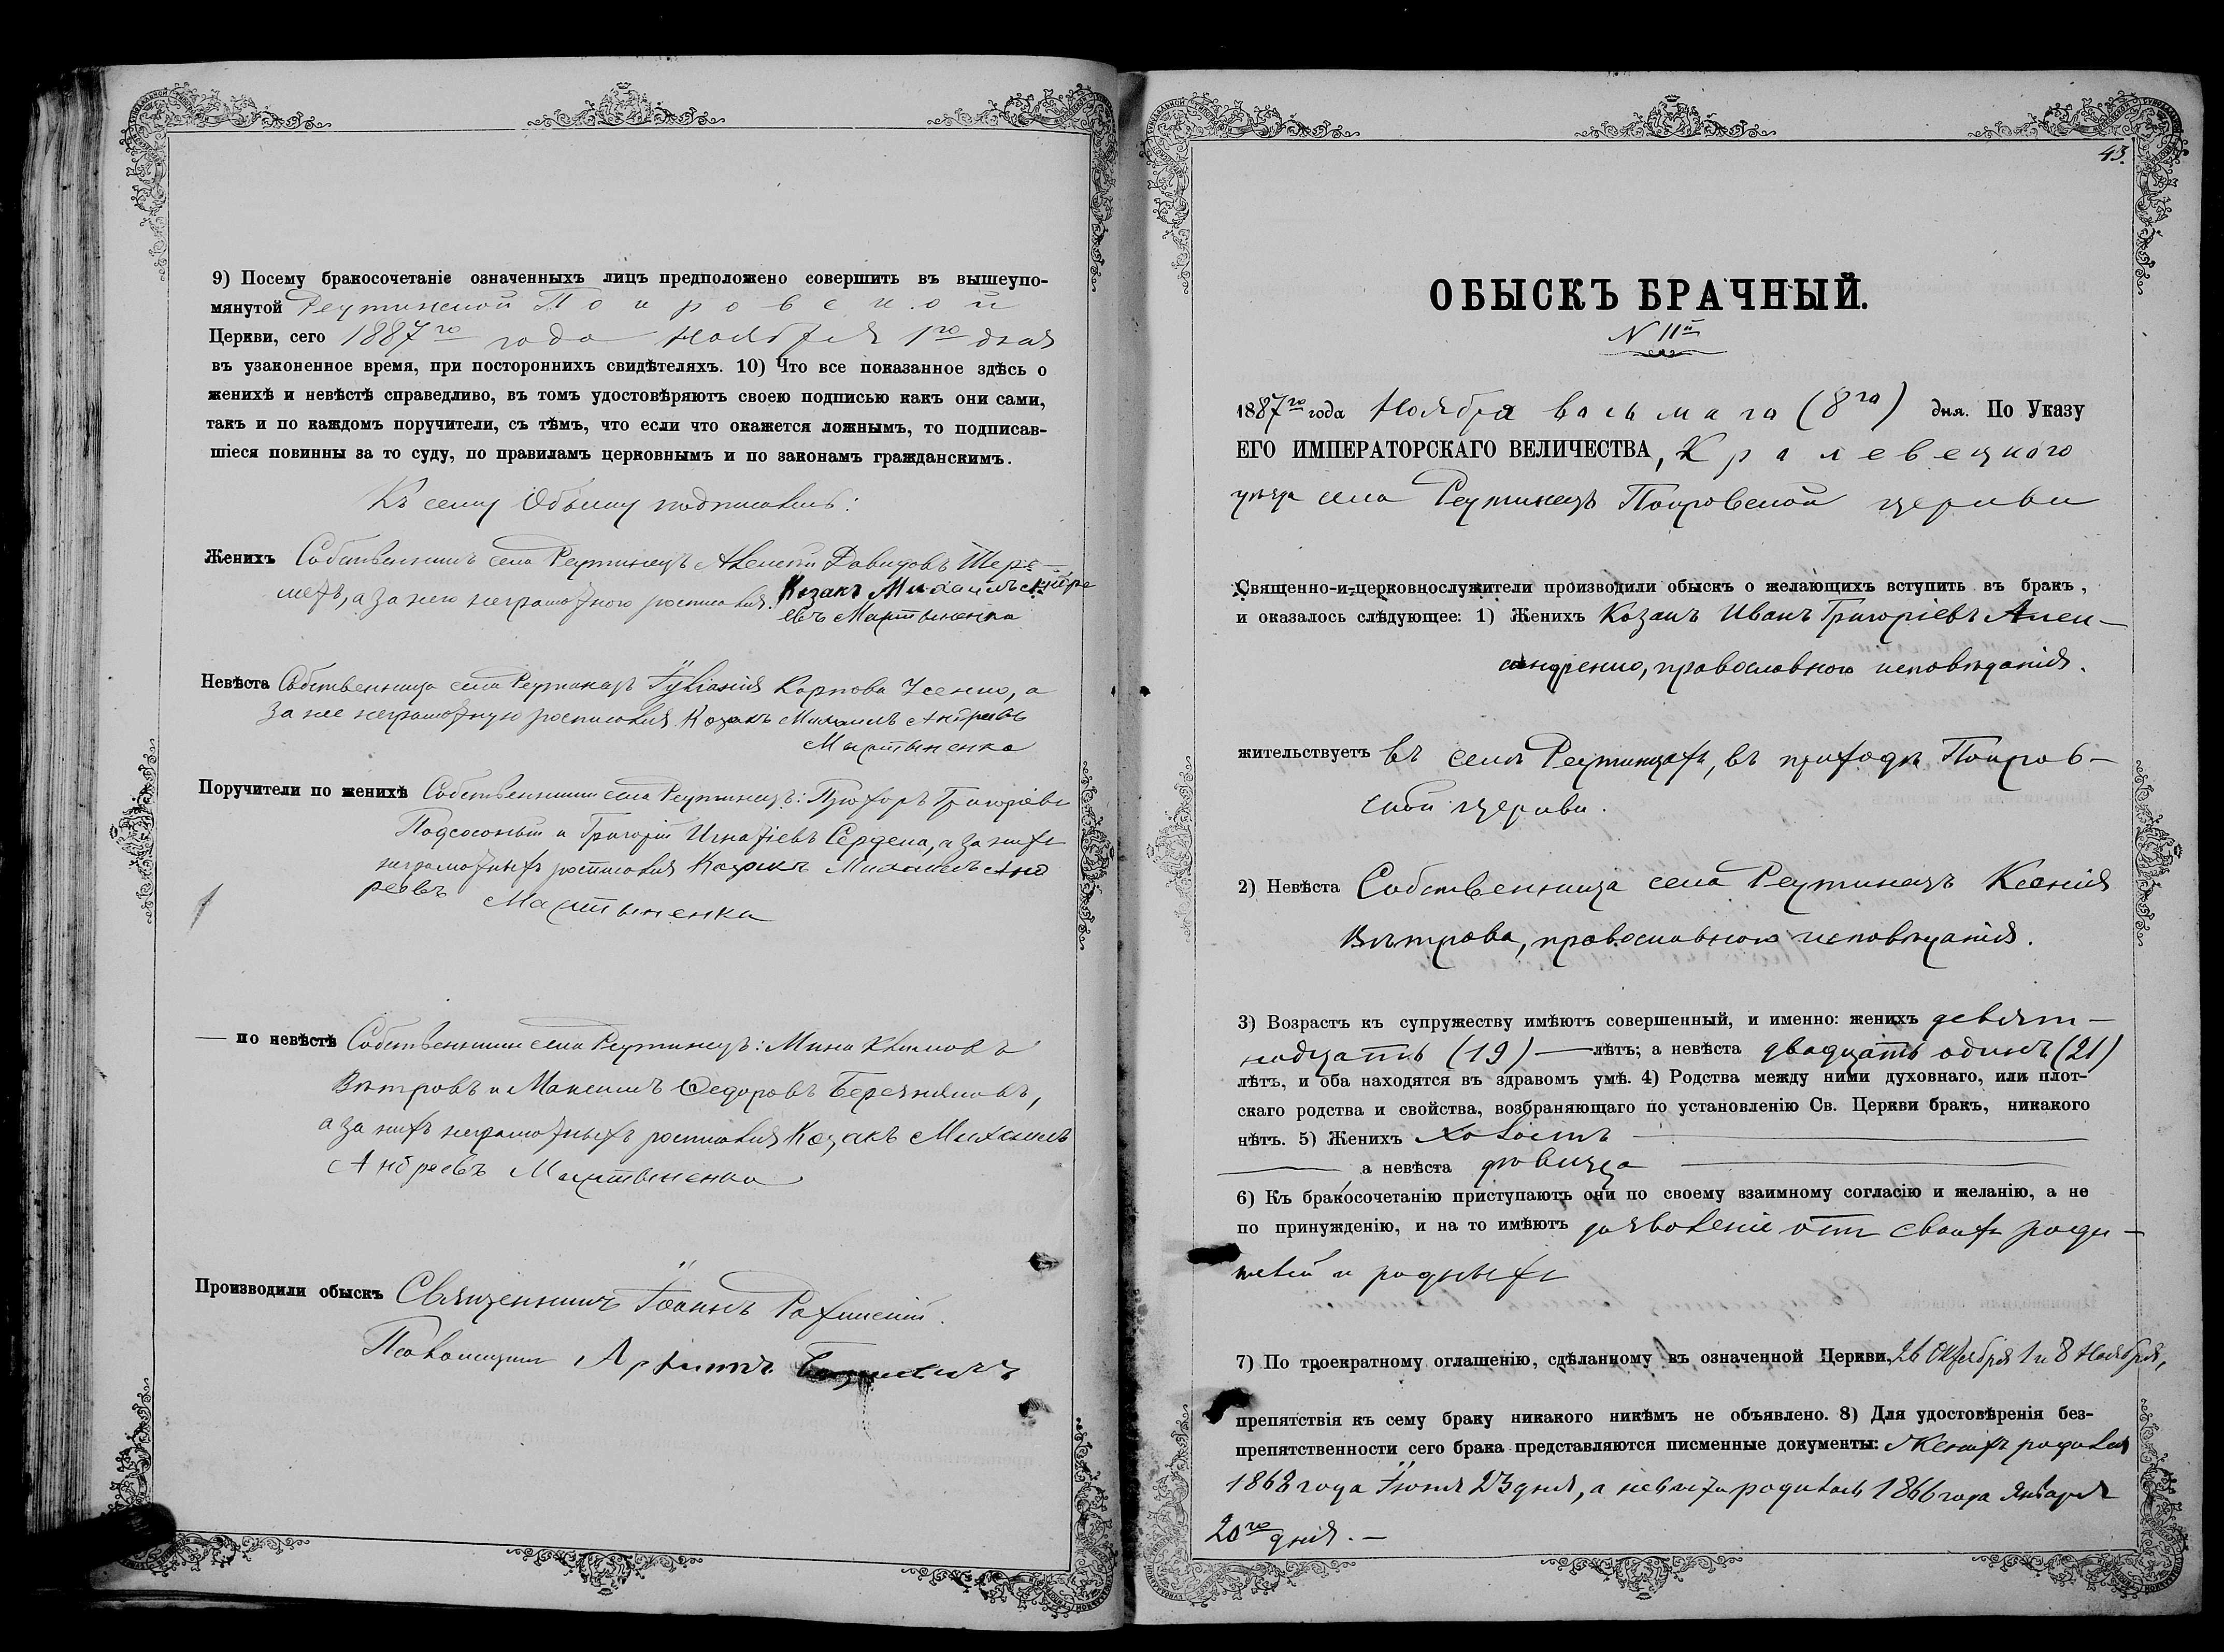 9) Посему бракосочетаніе означенныхъ лицъ предположено совершить въ вышеупо-
мянутой Реутинской Покровской
Церкви, сего 1887го года Ноября 1го дня
въ узаконенное время, при постороннихъ свидѣтеляхъ. 10) Что все показанное здѣсь о
женихѣ и невѣстѣ справедливо, въ томъ удостовѣряютъ своею подписью какъ они сами,
такъ и по каждомъ поручители, съ тѣмъ, что если что окажется ложнымъ, то подписав-
шіеся повинны за то суду, по правиламъ церковнымъ и по законамъ гражданскимъ.
Къ сему Обыску подписались:
Женихъ Собственникъ села Реутинецъ Алексѣй Давидовъ Шере-
метъ, а за него неграмотного росписался Козакъ Михаилъ Андре
евъ Мартыненко
Невѣста Собственница села Реутинецъ Іуліанія Карпова Усенко, а
за нее неграмотную росписался Козакъ Михаилъ Андреевъ
Мартыненко
Поручители по женихѣ Собственники села Реутинецъ: Прохоръ Григоріевъ
Подсосоный и Григорій Игнатіевъ Сердека, а за нихъ
неграмотныхъ росписался Козакъ Михаилъ Анд
реевъ Мартыненко
— по невѣстѣ Собственники села Реутинецъ: Мина Климовъ
Вѣтровъ и Максимъ Федоровъ
а за нихъ неграмотныхъ росписался Козакъ Михаилъ
Андреевъ Мартыненко
Производили обыскъ Священникъ Іоаннъ
Псаломщикъ
43.
ОБЫСКЪ БРАЧНЫЙ.
N 11й
1887го года Ноября восьмаго (8го) дня. По Указу
ЕГО ИМПЕРАТОРСКАГО ВЕЛИЧЕСТВА, Кралевецкого
уѣзда села Реутинецъ Покровской церкви
Священно-и-церковнослужители производили обыскъ о желающихъ вступить въ бракъ,
и оказалось слѣдующее: 1) Женихъ Козакъ Иванъ Григоріевъ Алек-
сандренко, православного исповѣданія.
жительствуетъ въ селѣ Реутинцахъ, въ приходѣ Покров-
ской церкви.
2) Невѣста Собственница села Реутинецъ Ксенія
Вѣтрова, православного исповѣданія.
3) Возрастъ къ супружеству имѣютъ совершенный, и именно: женихъ девят-
надцать (19) — лѣтъ; а невѣста двадцать одинъ (21)
лѣтъ, и оба находятся въ здравомъ умѣ. 4) Родства между ними духовнаго, или плот-
скаго родства и свойства, возбраняющаго по установленію Св. Церкви бракъ, никакого
нѣтъ. 5) Женихъ холостъ
, а невѣста дѣвица
6) Къ бракосочетанію приступаютъ они по своему взаимному согласію и желанію, а не
по принужденію, и на то имѣютъ дозволеніе отъ своихъ роди-
телей и родныхъ
7) По троекратному оглашенію, сдѣланному въ означенной Церкви, 26 Октября 1 и 8 Ноября,
препятствія къ сему браку никакого никѣмъ не объявлено. 8) Для удостовѣренія без-
препятственности сего брака представляются писменные документы: Женихъ родился
1868 года Іюня 23 дня, а невѣста родилась 1866 года Января
20го дня. —